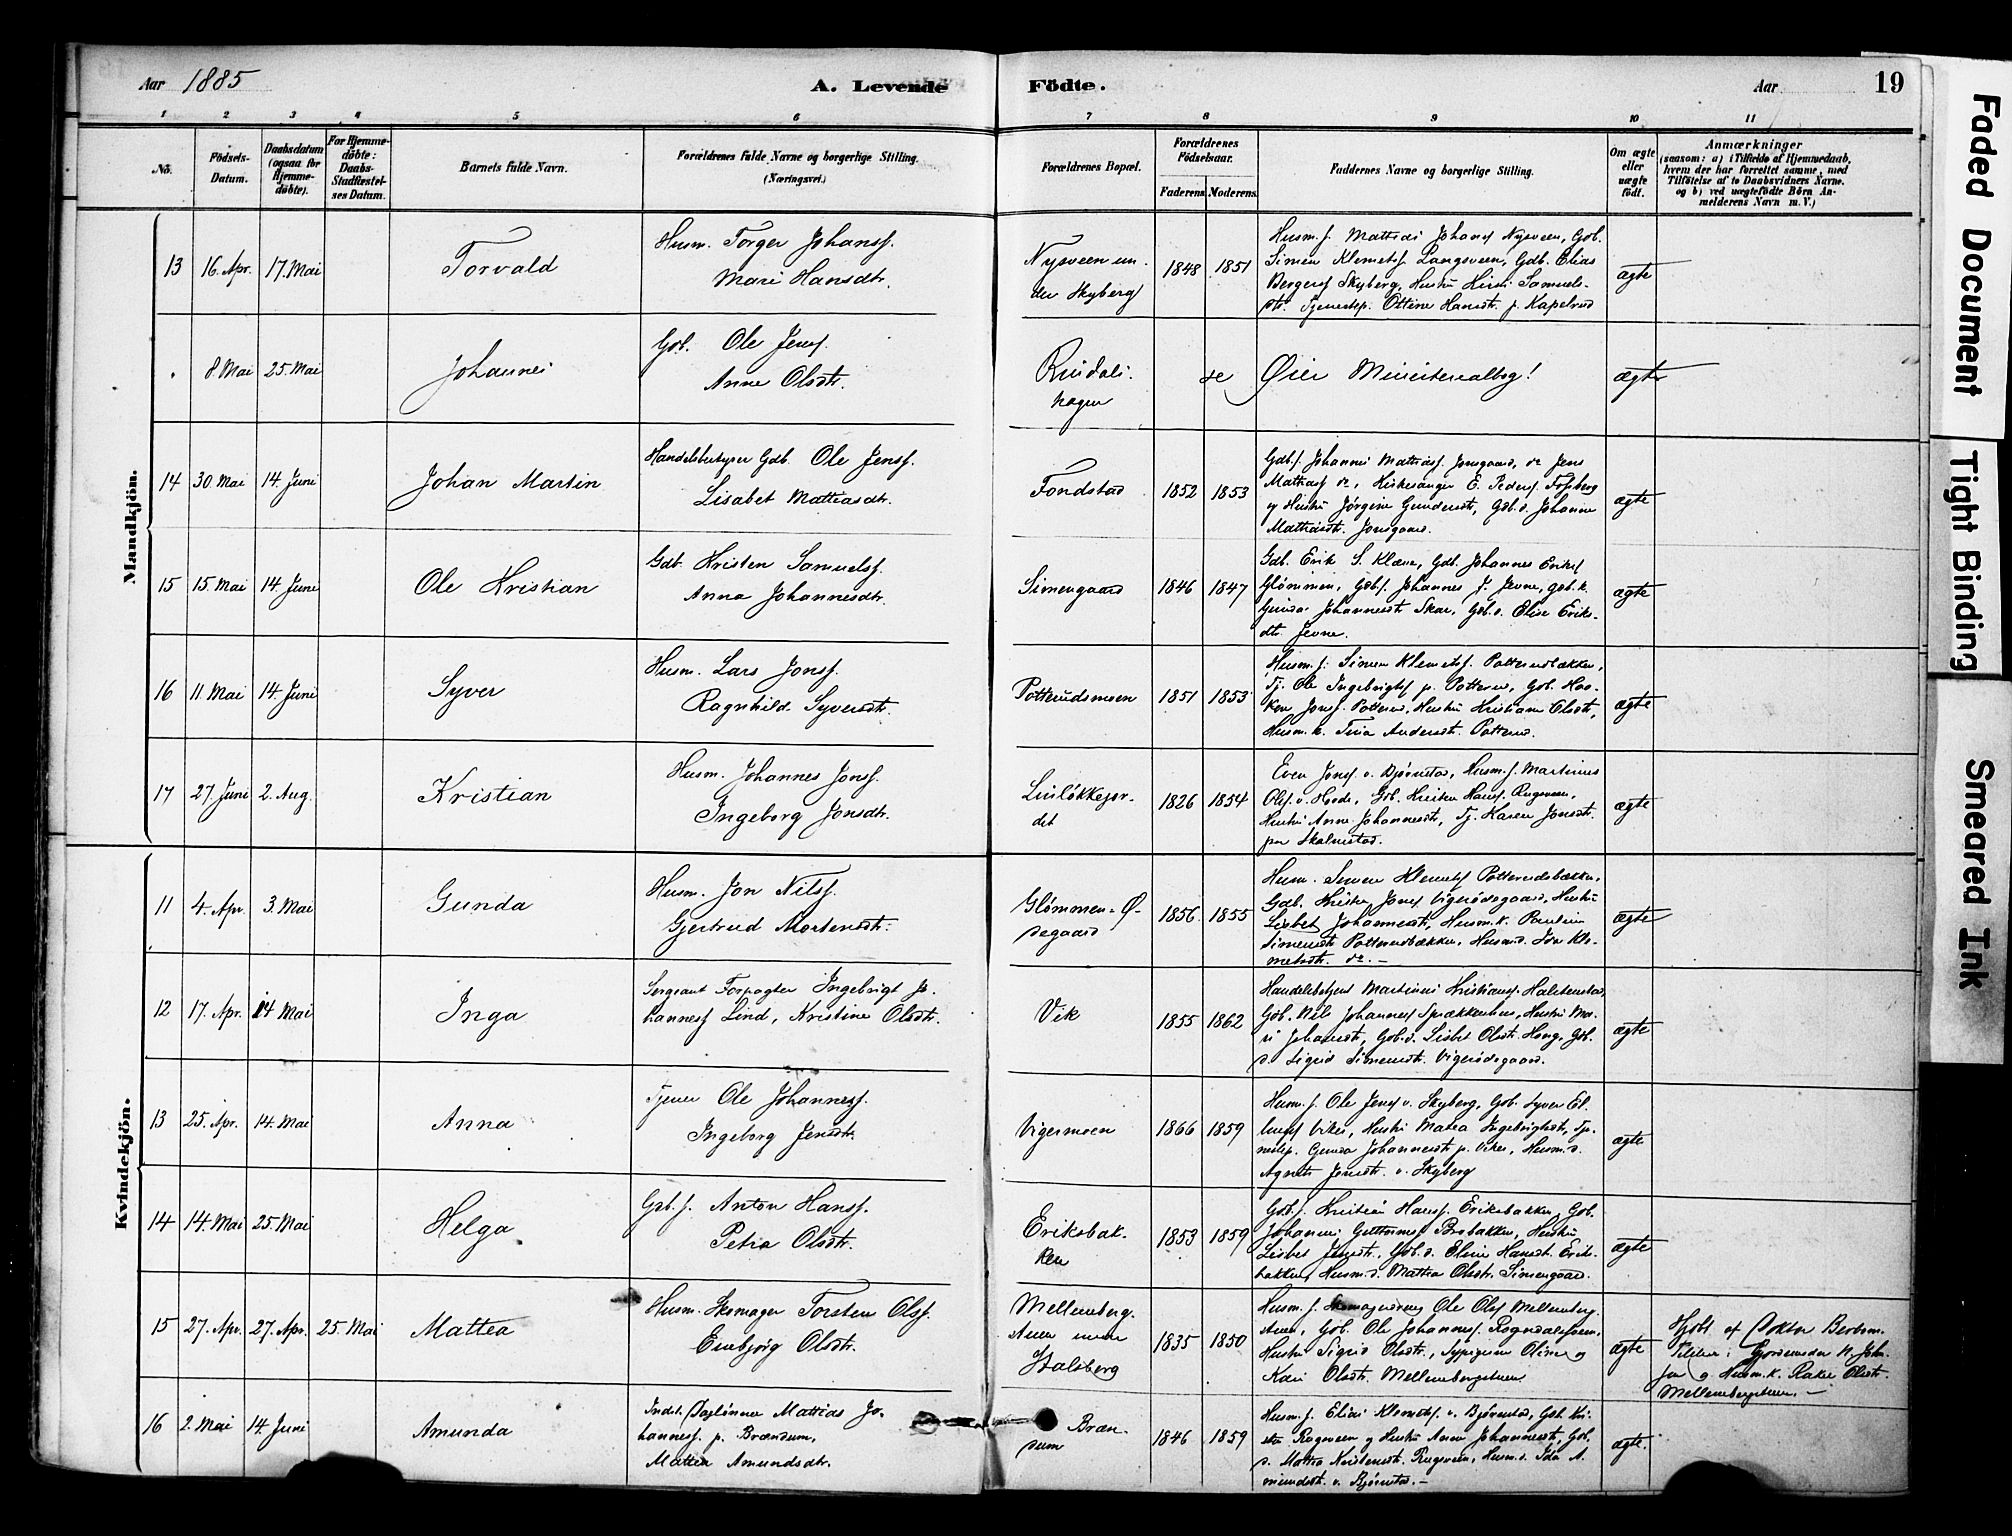 Aar 1885
A. Levende Födte.
Aar
19
1 2 3 4 5 6 7 8 9 10 11
No.
Födsels-Datum.
Daabsdatum (ogsaa for Hjemmedöbte).
For Hjemmedöbte: Daabs-Stadfæstelses Datum.
Barnets fulde Navn.
Forældrenes fulde Navne og borgerlige Stilling. (Næringsvei.)
Forældrenes Bopæl.
Forældrenes Födselsaar.
Faderens Moderens
Faddernes Navne og borgerlige Stilling.
Om ægte eller uægte födt.
Anmærkninger
(saasom: a) i Tilfælde af Hjemmedaab, hvem der har forrettet samme, med Tilföielse af to Daabsvidners Navne, og b) ved uægtefödte Börn Anmelderens Navn m. V.)
Mandkjön.
13 16. Apr. 17. Mai
Torvald
Husm. Torger Johanss.
Mari Hansdtr.
Nysveen un-
der Skyberg
1848 1851
Husm. s. Mathias Johans Nysveen, Gdb.
Simen Klemets. Langsveen, Gdb. Elias
Bergers Skyberg, Hustru Kirsti Samuels-
dtr. Tjenestep. Ottine Hansdtr. p. Kapelrud
ægte
8 Mai 25. Mai
Johannes
Gdb. Ole Jens.
Anne Olsdtr.
Rindals-
hagen
se Øier Ministerialbog!
ægte
14 30 Mai 14. Juni
Johan Martin
Handelsbestyrer Gdb. Ole Jenss.
Lisabet Mattiasdtr.
Fondstad
1852 1853
Gdb. s. Johannes Mathias. Jonsgaard, do Jens
Mathias do, Kirkesanger E. Peders. Fossberg
og Hustru Jørgine Gundersdtr, Gdb. d. Johanne
Mathiasdtr. Jonsgaard.
ægte
15 15. Mai 14. Juni
Ole Kristian
Gdb. Kristen Samuelss.
Anna Johannesdtr.
Simengaard
1846 1847
Gdb. Erik S. Klæve, Gdb. Johannes Eriks
Glømmen, Gdb. s. Johannes J. Jevne, Gdb. k.
Gunda Johannesdtr Skar, Gdb. d. Elise Eriks-
dtr. Jevne.
ægte
16 11 Mai 14. Juni
Syver
Husm. Lars Jonss.
Ragnhild Syversdtr.
Potterudsmoen
1851 1853
Husm. s. Simen Klemets. Potterudbækken,
Tj. Ole Ingebrigts p. Potterud, Gdb. Haa-
ken Jons. Potterud, Hustru Kristiane Olsdtr,
Husm. k. Tina Andersdtr. Potterud.
ægte
17 27. Juni 2. Aug.
Kristian
Husm. Johannes Jonss.
Ingeborg Jonsdtr.
Linløkkejor-
det
1826 1854
Even Jons v. Bjørnstad, Husm. s. Martinus
Ols. v. Hovde, Gdb. Kristen Hans. Rugsveen,
Hustru Anne Johannesdtr, Tj. Karen Jonsdtr.
paa Skalmstad.
ægte
Kvindekjön.
11 4. Apr. 3. Mai
Gunda
Husm. Jon Nilss.
Gjertrud Mortensdtr.
Glømmen-Ø-
degaard
1856 1855
Husm. Simen Klemets Potterudsbækken,
Gdb. Kristen Jons Vigerødegaard, Hustru
Lisbet Johannesdtr, Husm. k. Pauline
Simensdtr Potterudbækken, Husm. d. Ida Kle-
metsdtr. do. -
ægte
12 17. Apr. 14 Mai
Inga
Sergeant Forpagter Ingebrigt Jo-
hanness Lind, Kristine Olsdtr.
Vik
1855 1862
Handelsbetjent Martinus Kristians. Halstenstad,
Gdb. Nils Johannes Sprækkenhus, Hustru Ma-
ri Johansdtr, Gdb. d. Lisbet Olsdtr. Haug, Gdb.
d. Sigrid Simensdtr. Vigerødegaard.
ægte
13 25. Apr. 14. Mai
Anna
Tjener Ole Johanness.
Ingeborg Jensdtr.
Vigermoen
1866 1859
Husm. s. Ole Jens v. Skyberg, Gdb. Syver El-
lings Viker, Hustru Matea Ingebrigtsdtr, Tje-
nestep. Gunda Johannesdtr p. Viker, Husm. d.
Agnete Jensdtr. v. Skyberg
ægte
14 14. Mai 25. Mai
Helga
Gdb. s. Anton Hanss.
Petra Olsdtr.
Eriksbak-
ken
1853 1859
Gdb. s. Kristian Hans. Eriksbakken, Gdb.
Johannes Guttorms Brobakken, Hustru
Lisbet Jensdtr, Gdb. d. Eline Hansdtr Eriks-
bakken, Husm. d. Mathea Olsdtr. Simengaard.
ægte
15 27. Apr. 27. Apr. 25 Mai
Mattea
Husm. Skomager Torsten Olss.
Embjørg Olsdtr.
Mellemberg-
steen under
Stalsberg
1835 1850
Husm. s. Skomagersvend Ole Ols Mellemberg-
steen, Gdb. Ole Johanness. Rogndalssveen,
Hustru Sigrid Olsdtr., Sypigerne Oline og
Kari Olsdtr. Mellembergsteen
ægte
Hjdbt. af Doktor
Gjordemoder
og Husm. k. Rakel Olsdtr.
Mellembergsteen. -
16 2. Mai 14. Juni
Amunda
Inds. Dagløner Mattias Jo-
hanness. p. Brændum,
Mattea Amundsdtr.
Bræn-
dum
1846 1859
Husm. s. Elias Klemets. v. Bjørnstad, Gdb. Kri-
sten Rugsveen og Hustru Anne Johannesdtr, Gdb.
d. Mathea Kristensdtr. Rugsveen, Husm. d. Ida A-
mundsdtr. v. Bjørnstad. -
ægte.
Faded Document
Tight Binding
Smeared Ink